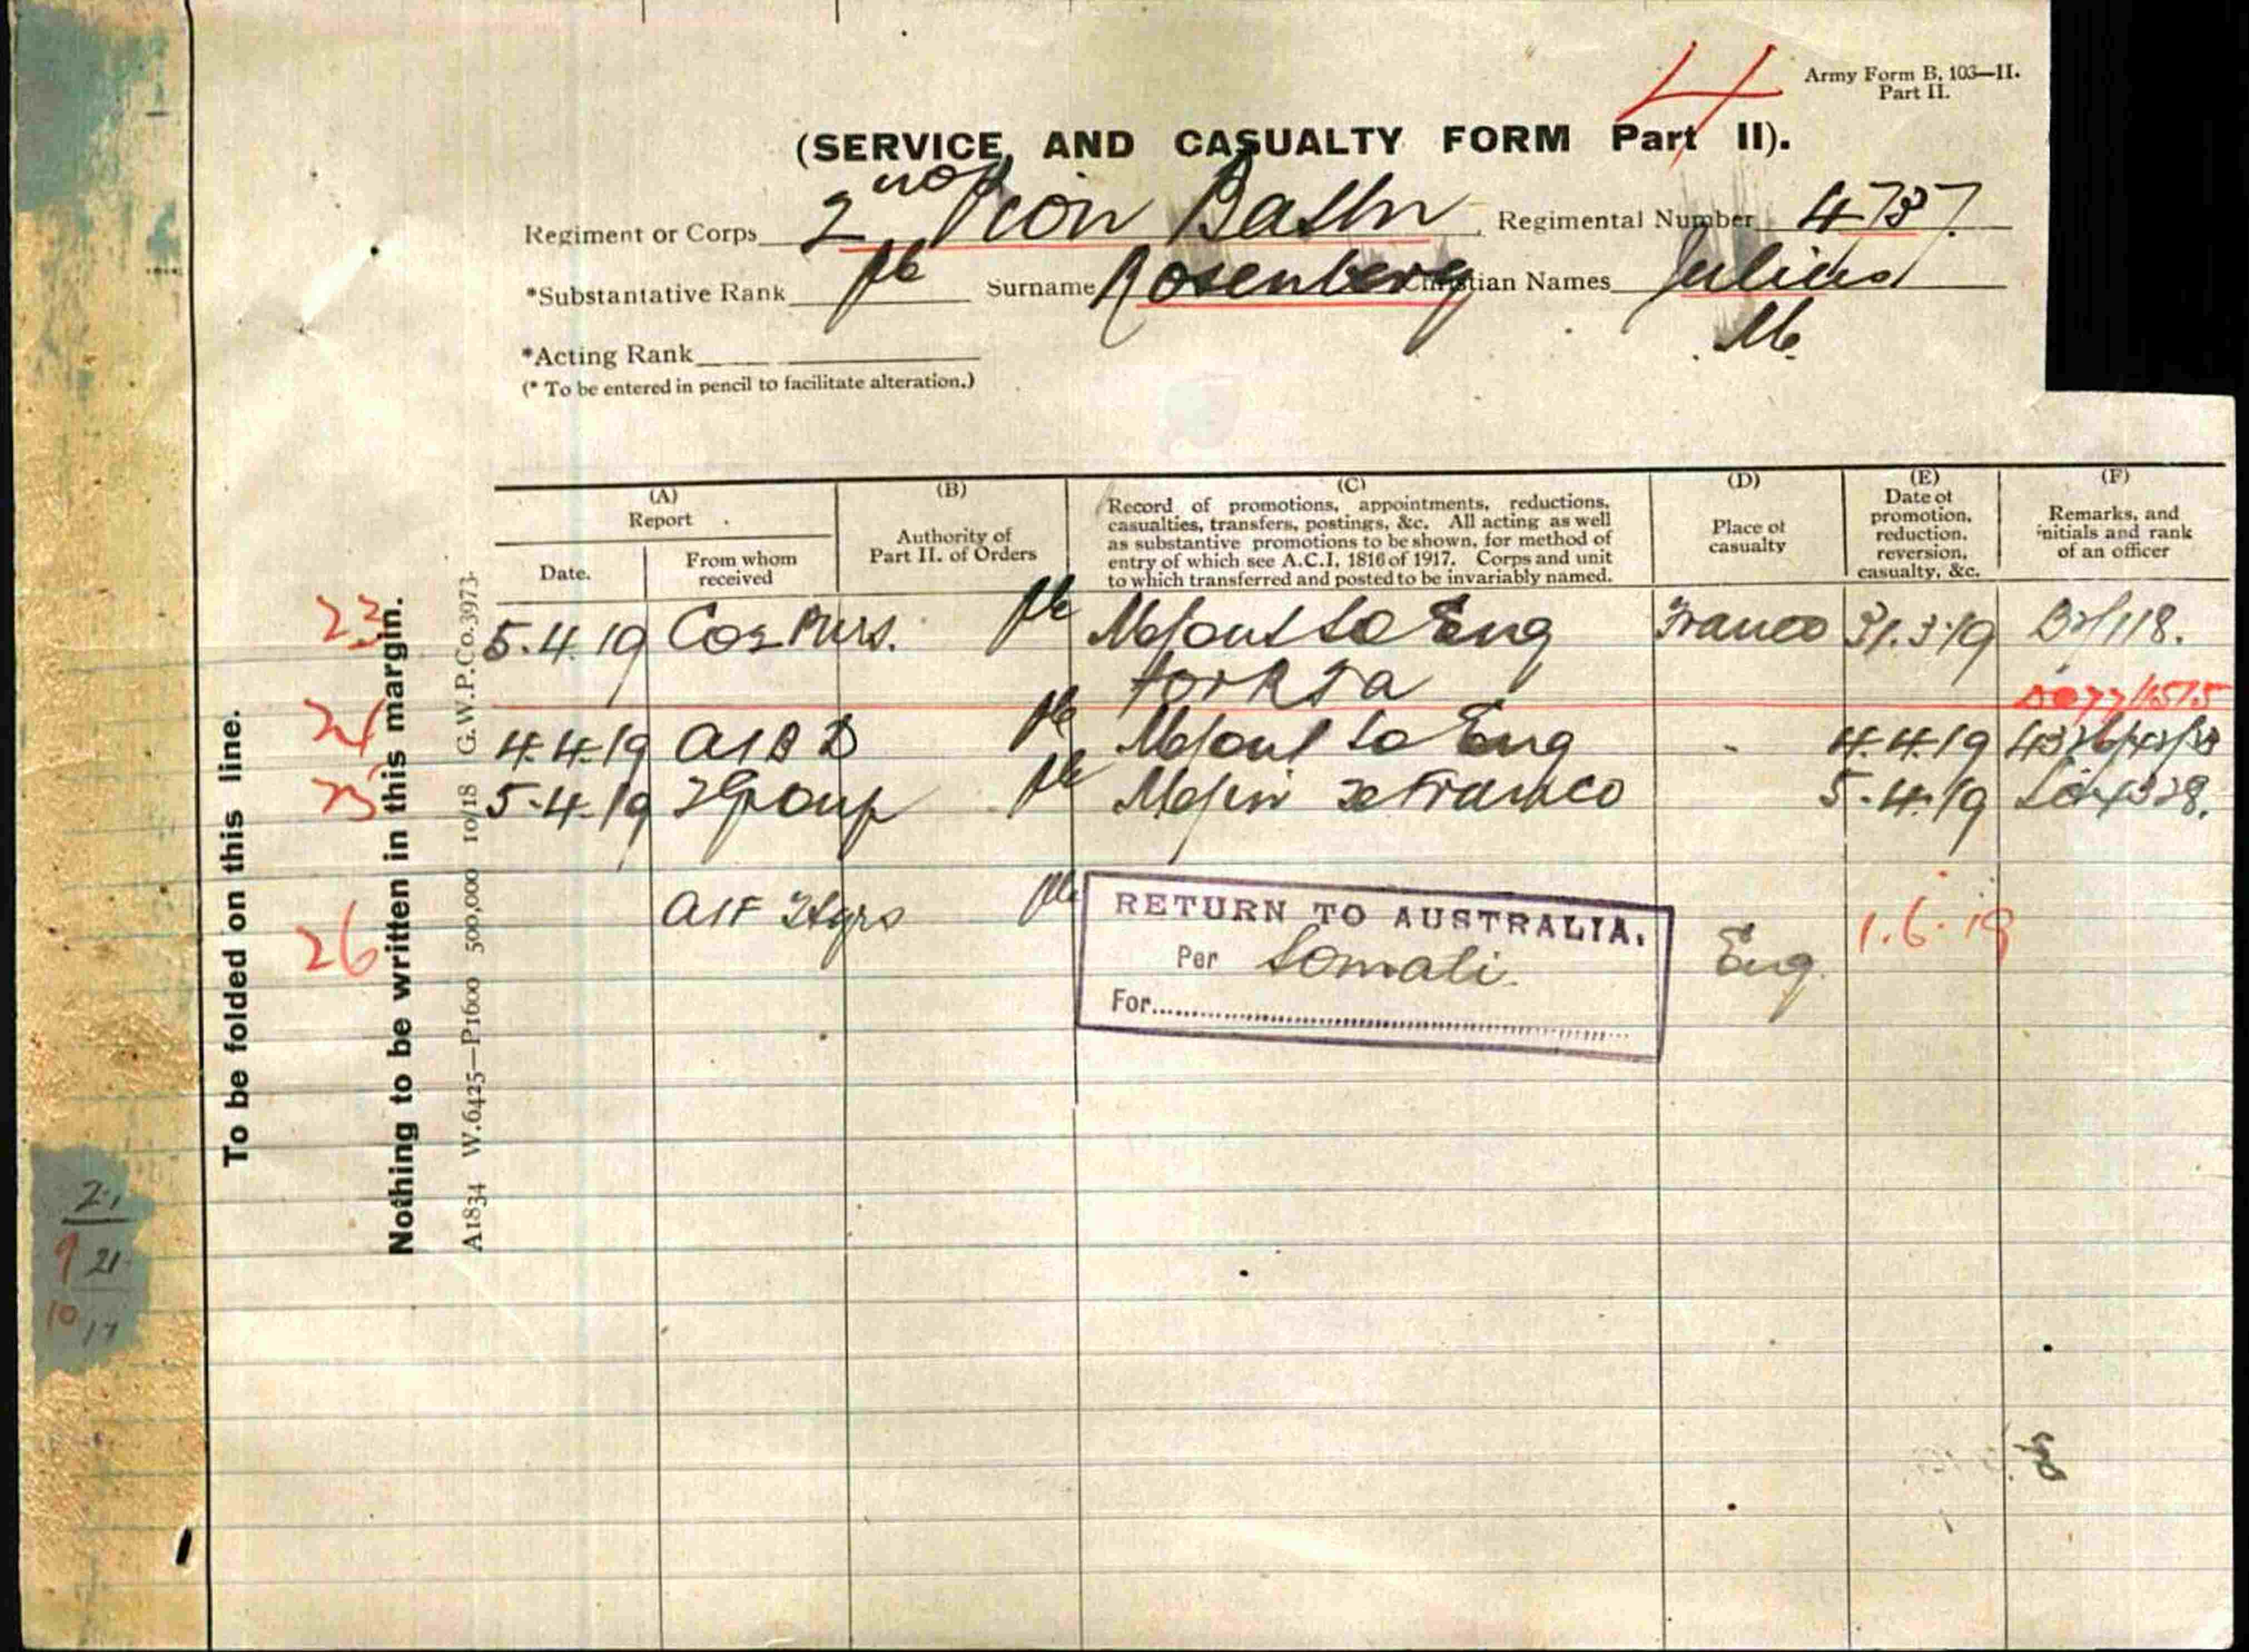 4
Army Form B. 103—II.
Part II.
(SERVICE AND CASUALTY FORM Part II).
Regiment or Corps 2nd Pion Battn Regimental Number 4737
*Substantative Rank Pte Surname Rosenberg Christian Names Julius
M.
*Acting Rank
(* To be entered in pencil to facilitate alteration.)
(A)
Report
Date.
From whom received
(B)
Authority of
Part II. of Orders
(C)
Record of promotions, appointments, reductions,
casualties, transfers, postings, &c. All acting as well
as substantive promotions to be shown, for method of
entry of which see A.C.I. 1816 of 1917. Corps and unit
to which transferred and posted to be invariably named.
(D)
Place of
casualty
(E)
Date of
promotion,
reduction,
reversion,
casualty, &c.
(F)
Remarks, and
initials and rank
of an officer
23 5.4.19 Pte M/out to Eng France 31.3.19 118.
for R T A
4.4.19 Pte M/out to Eng 4.4.19
5.4.19 Group Pte M/in ex France 5.4.19
26 AIF Hqrs Pte
RETURN TO AUSTRALIA.
Per Somali.
For
Eng. 1.6.19
To be folded on this line.
Nothing to be written in this margin.
A1834 W.6425—P1600 500,000 10/18 G.W.P.Co.3973.
21
9 21
10 17